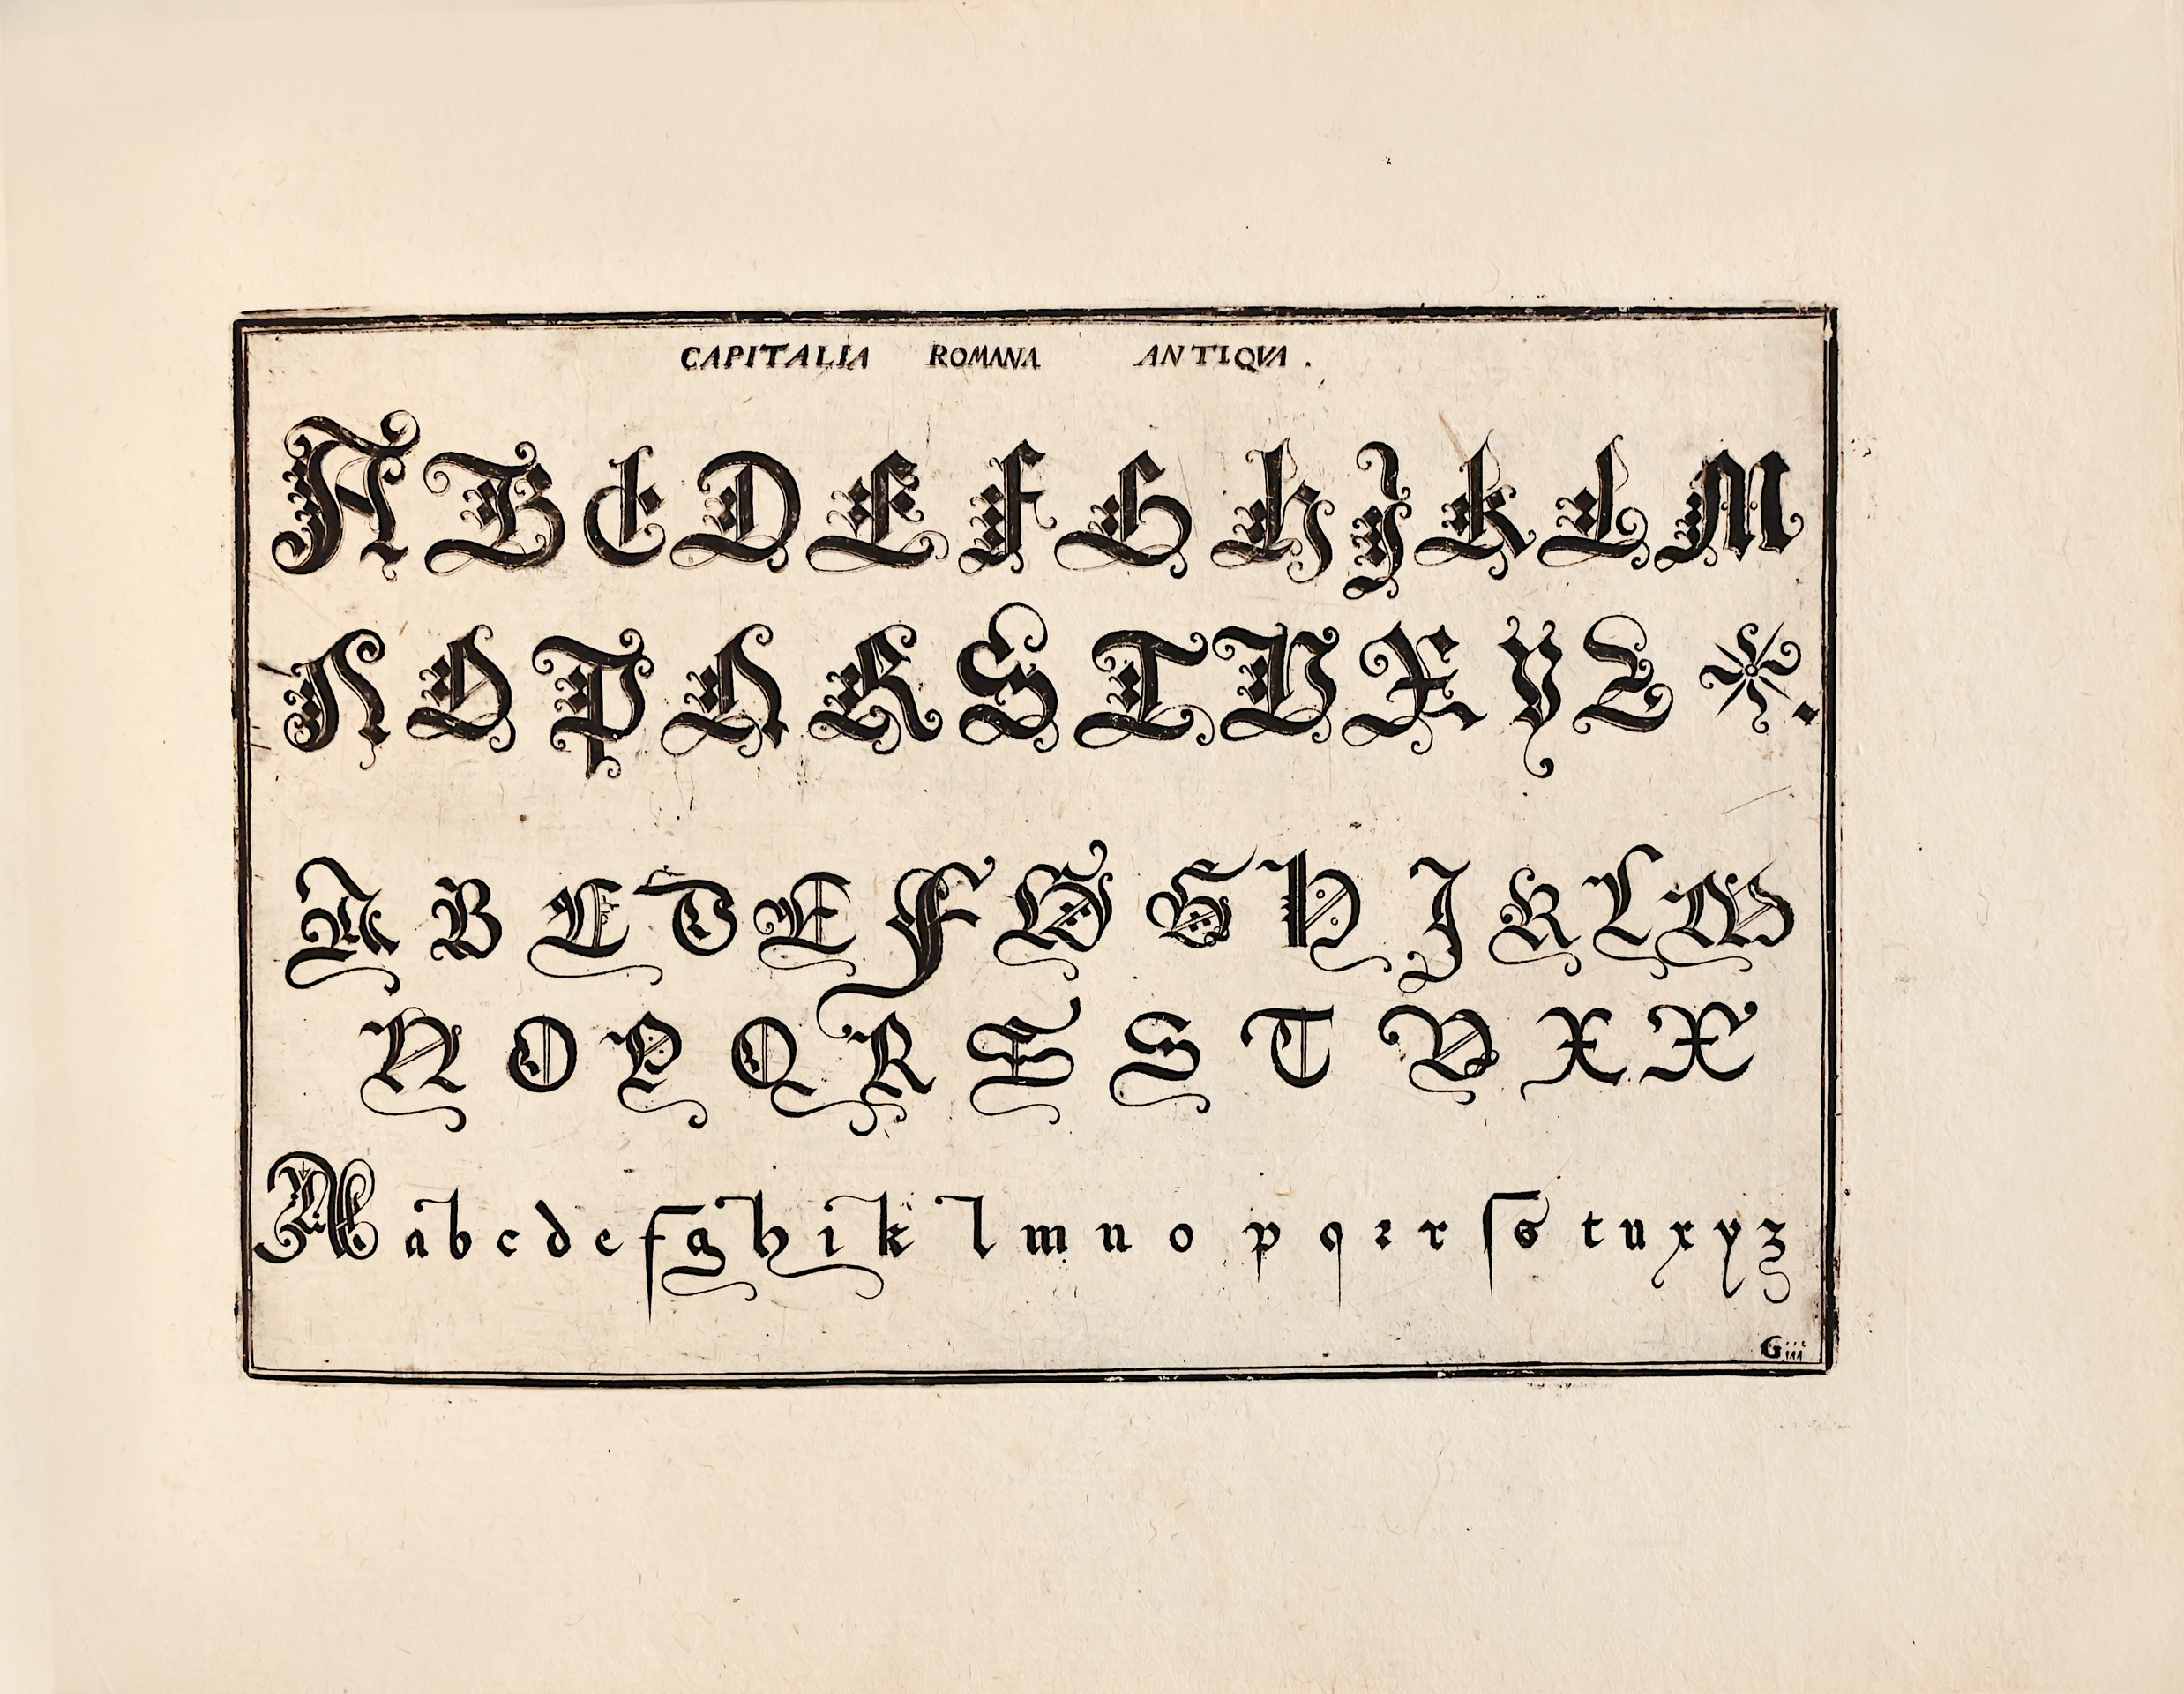 CAPITALIA ROMANA ANTIQVA.
A B C D E F G H J K L M
N O P Q R S T V X Y Z
A B C D E F G G H J K L M
N O P Q R S S T V X X
A a b c d e f g h i k l m n o p q ꝛ r ſ s t u x y z
Giii